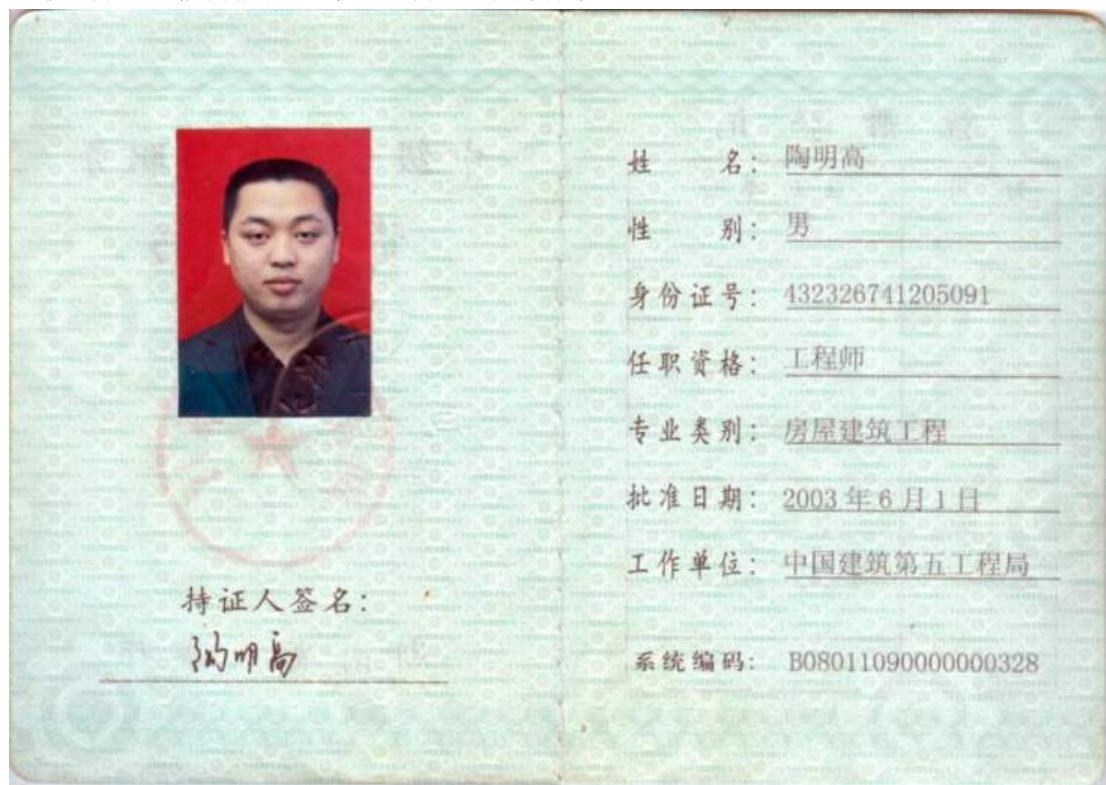 持证人签名:
陶明高
姓 名: 陶明高
性 别: 男
身份证号: 432326741205091
任职资格: 工程师
专业类别: 房屋建筑工程
批准日期: 2003 年 6 月 1 日
工作单位: 中国建筑第五工程局
系统编码: B08011090000000328